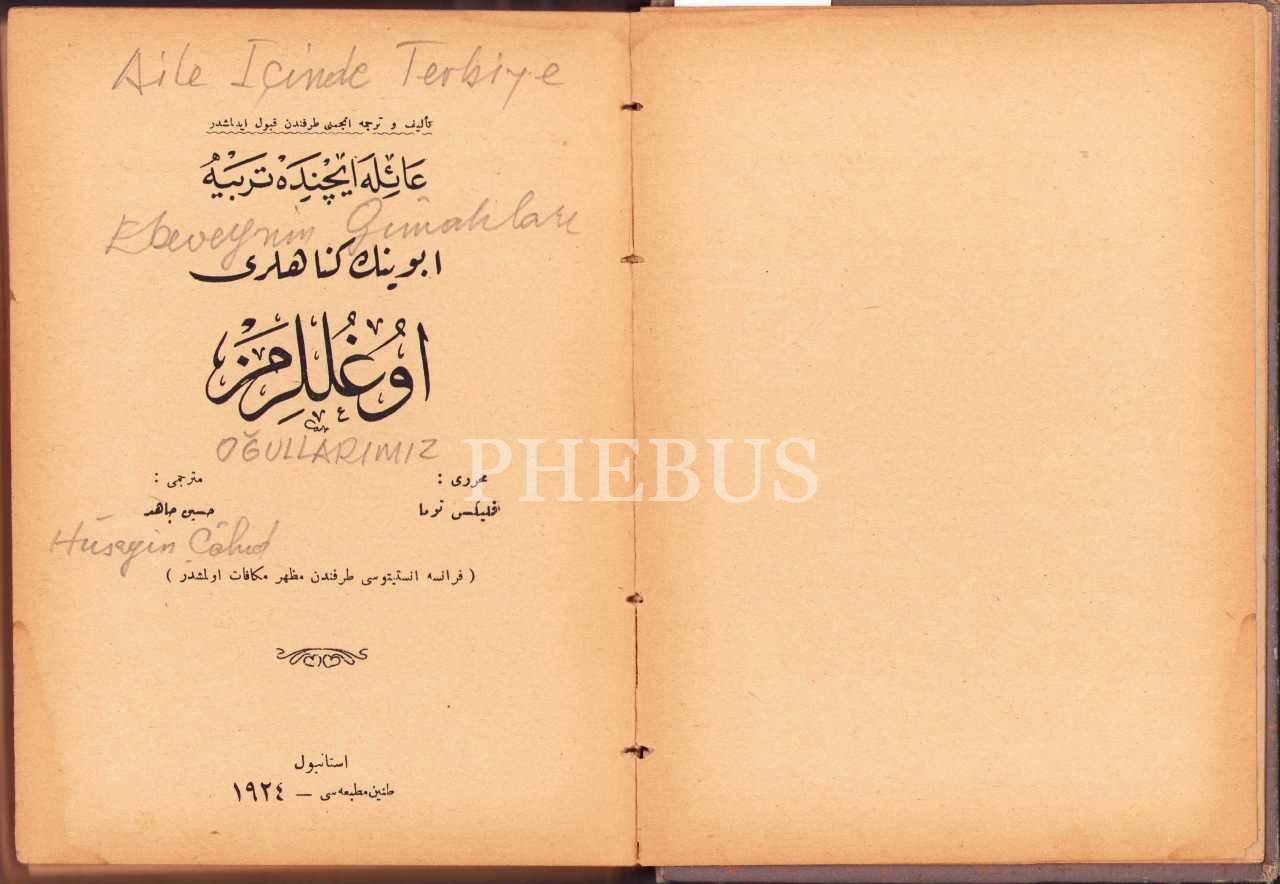 Aile İçinde Terbiye
تأليف و ترجمه انجمنى طرفندن قبول ايدلمشدر
عَائِلَه ايچِنْدَه تَربِيَه
Ebeveynin Günahları
ابوينك كناهلرى
اوُغُللرِمز
OĞULLARIMIZ
PHEBUS
محررى : مترجمى :
فليكس توما حسين جاهد
Hüseyin Câhid
( فرانسه انستيتوسى طرفندن مظهر مكافات اولمشدر )
استانبول
طنين مطبعه‌سى — ١٩٢٤